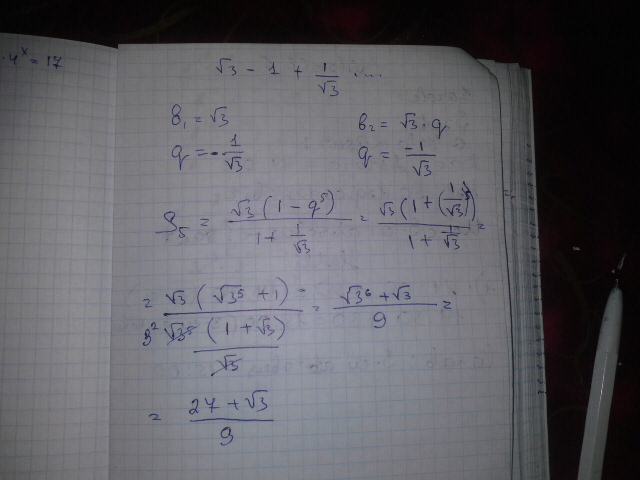 · 4^x = 17
√3 - 1 + 1/√3 ...
b₁ = √3
b₂ = √3 · q
q = - 1/√3
q = -1/√3
S₅ = √3 (1 - q⁵) / (1 + 1/√3) = √3 (1 + (1/√3)⁵) / (1 + 1/√3) =
= √3 (√3⁵ + 1) / (3² √3⁵ (1 + √3)/√3) = (√3⁶ + √3) / 9 =
= (27 + √3) / 9